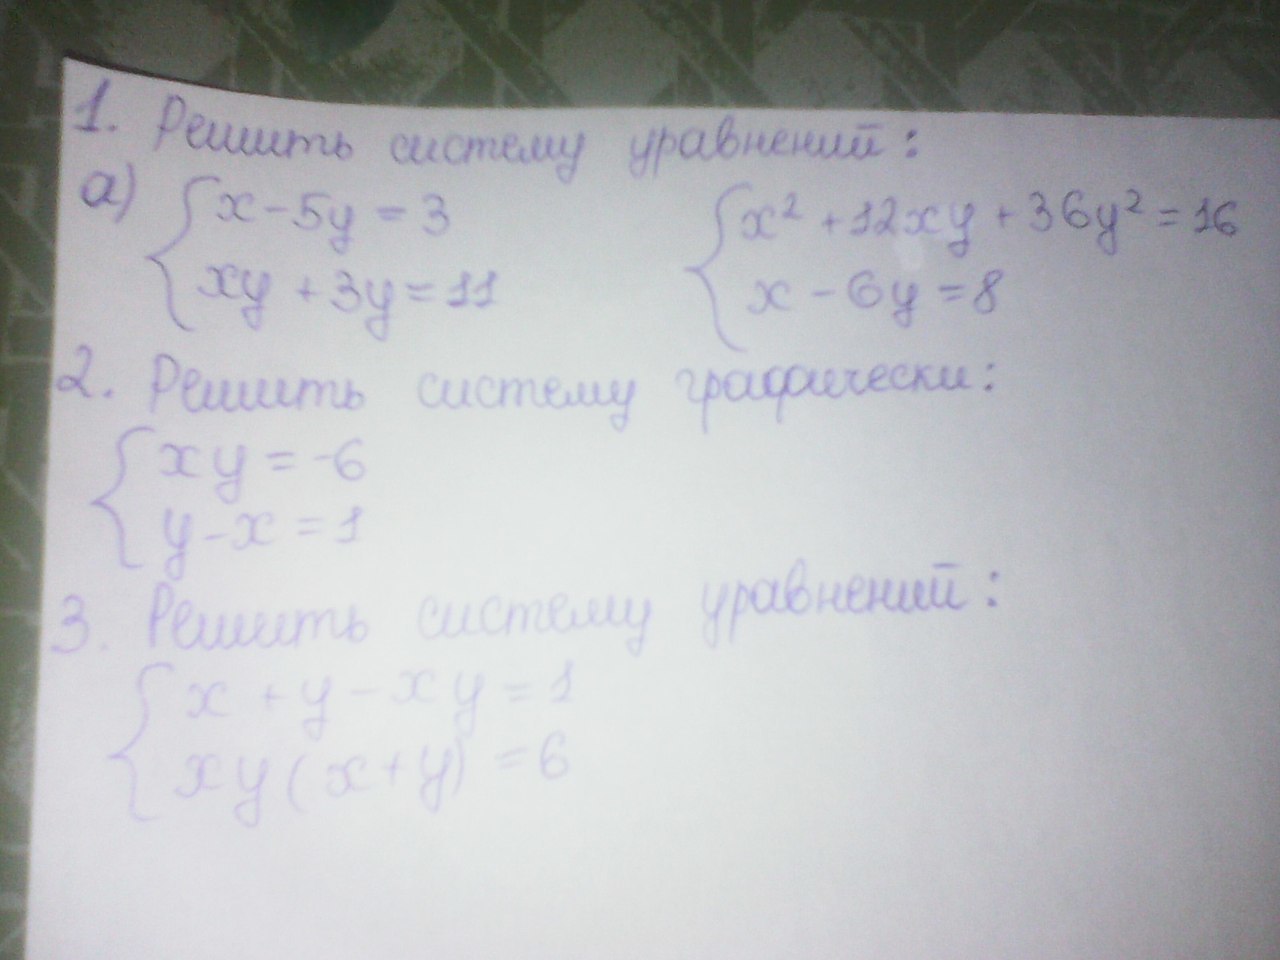 1. Решить систему уравнений:
а) { x - 5y = 3
xy + 3y = 11
{ x² + 12xy + 36y² = 16
x - 6y = 8
2. Решить систему графически:
{ xy = -6
y - x = 1
3. Решить систему уравнений:
{ x + y - xy = 1
xy(x + y) = 6